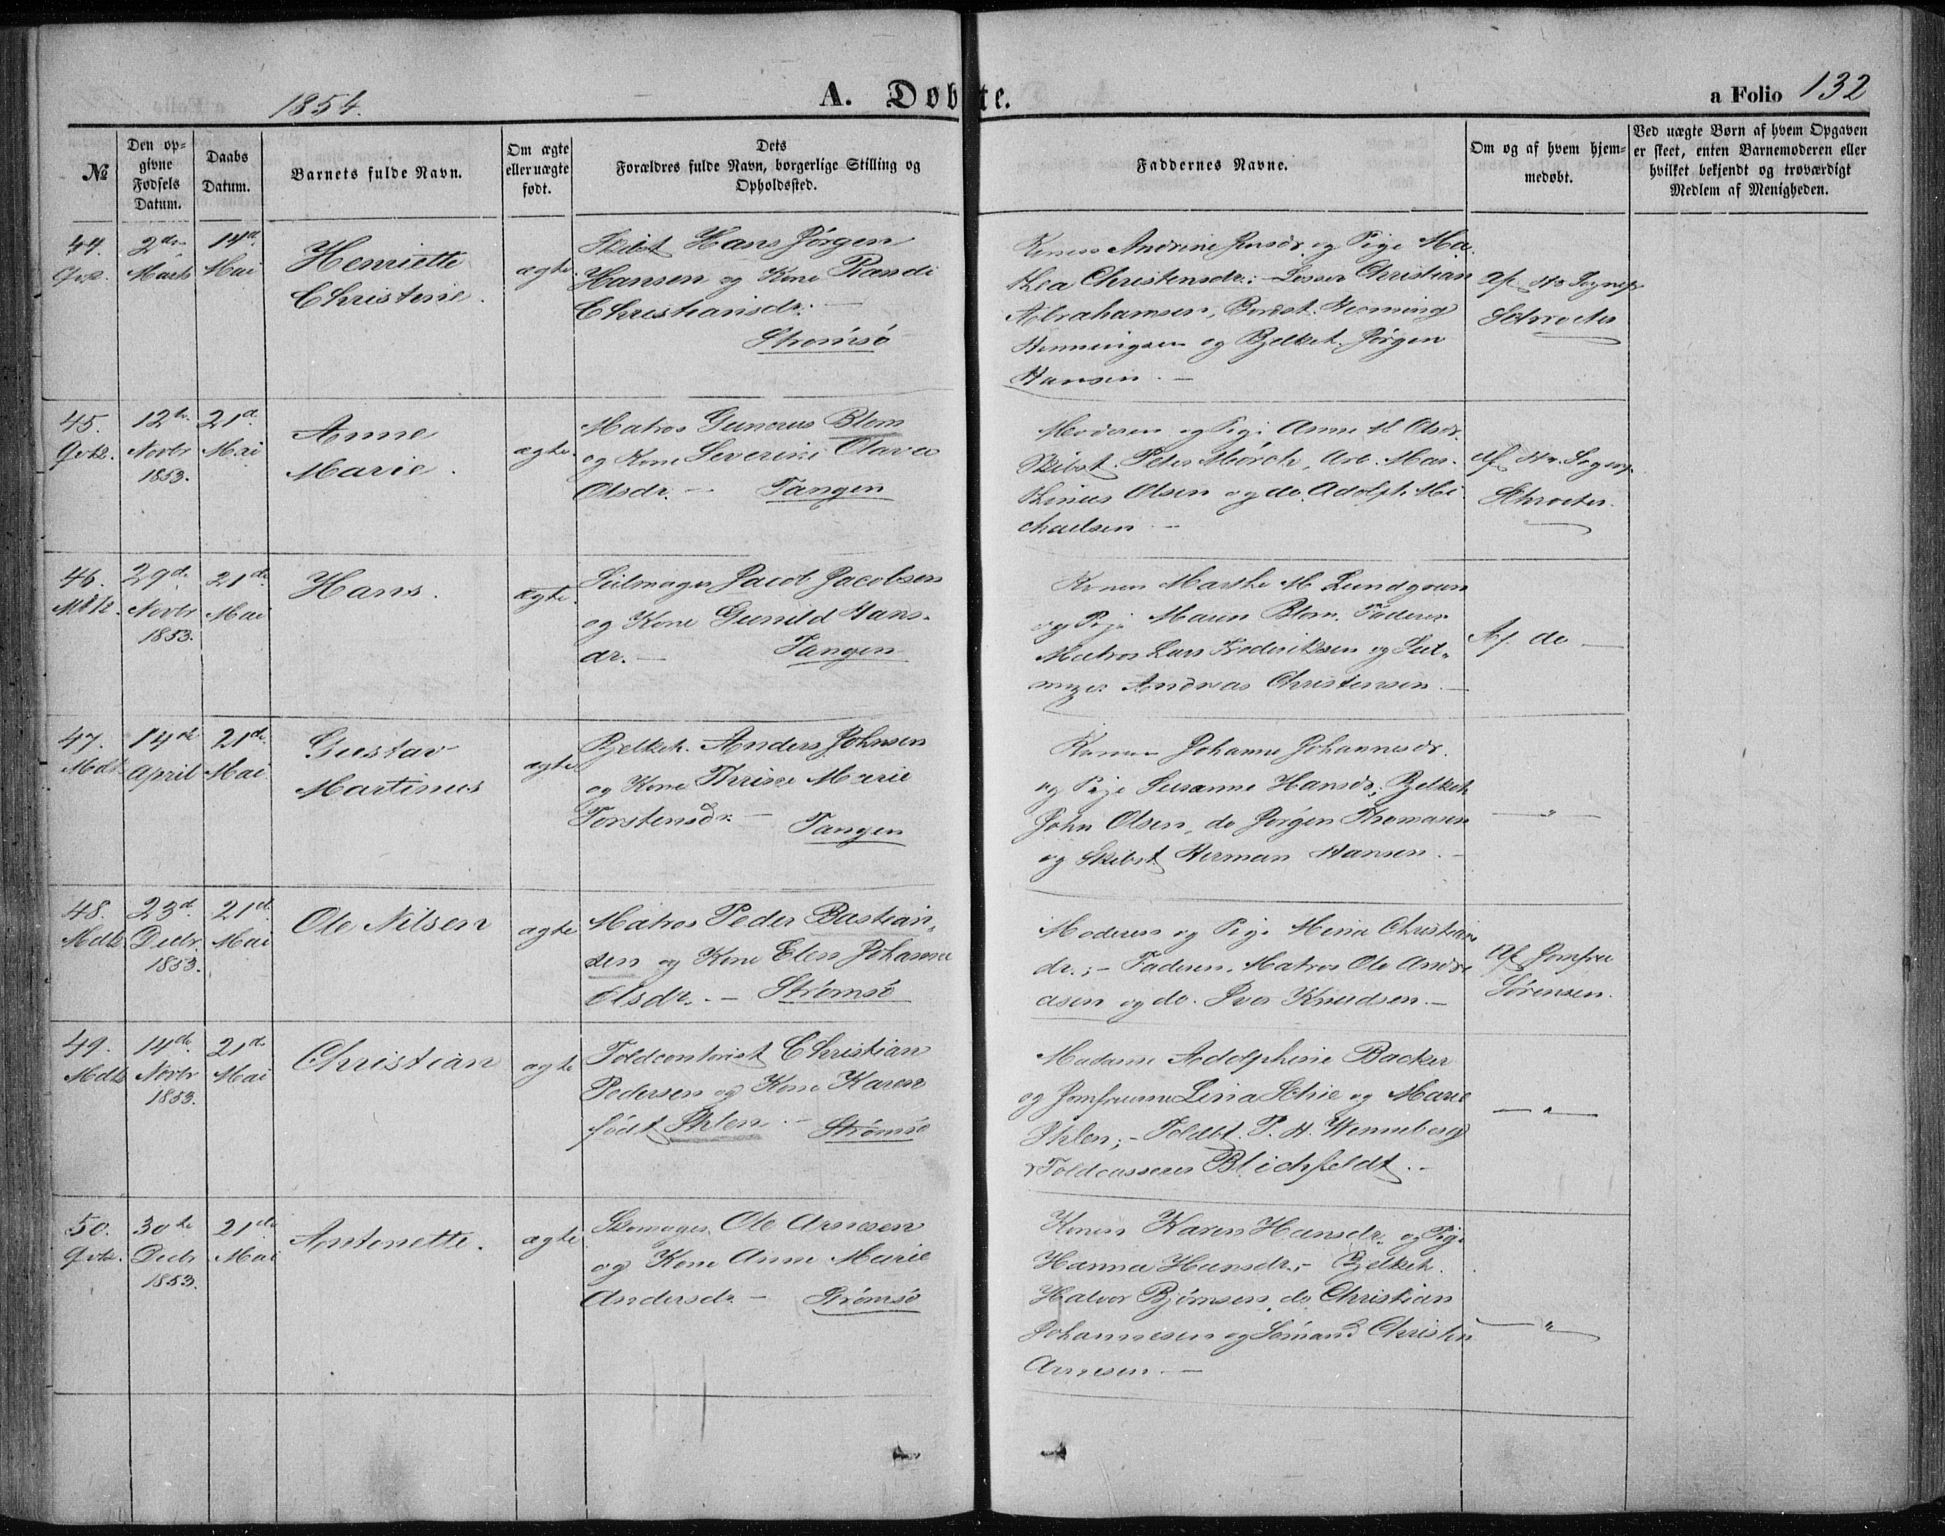 1854.
A. Døbte.
a Folio 132
№
Den opgivne Fødsels Datum.
Daabs Datum.
Barnets fulde Navn.
Om ægte eller uægte født.
Dets Forældres fulde Navn, borgerlige Stilling og Opholdssted.
Faddernes Navne.
Om og af hvem hjemmedøbt.
Ved uægte Børn af hvem Opgaven er skeet, enten Barnemoderen eller hvilket bekjendt og troværdigt Medlem af Menigheden.
44.
2den Marts
14d. Mai
Henriette
Christine.
ægte
Skibst Hans Jørgen
Hansen og Kone Randi
Christiansdr. —
Strømsø
Konen Andrine Jensdr. og Pige Ma-
thea Christensdr.; – Losser Christian
Abrahamsen, Henning
Henningsen og Bjelkeh. Jørgen
Hansen. —
Af Hr Sognep
Schroeter
45.
12te Novbr 1853.
21d. Mai
Anne
Marie.
ægte.
Matros Gunerus Blom
og Kone Severine Olava
Olsdr. — Tangen
Moderen og Pige Anne M. Olsdr.
Skibst. Peter Mørch, Arb. Mar-
thinius Olsen og do. Adolph Mi-
chaelsen —
Af Hr. Sognep
Schroeter.
46.
29de Novbr 1853.
21de Mai
Hans.
ægte.
Seilmager Jacob Jacobsen
og Kone Gunild Hans-
dr. — Tangen
Konen Marthe M. Lundgreen
og Pige Maren Blom. Faderen
Matros Lars Frederiksen og Seil-
mager Andreas Christensen. —
Af do —
47.
14de April
21de Mai
Gustav
Martinus
ægte
Bjelkeh. Anders Johnsen
og Kone Thrine Marie
Torstensdr. — Tangen
Konen Johanne Johannesdr.
og Pige Susanne Hansdr., Bjelkeh
John Olsen, do Jørgen Thomasen
og Skibst Herman Hansen. —
— " —
48.
23d. Decbr. 1853.
21d. Mai
Ole Nilsen
ægte
Matros Peder Bastian-
sen og Kone Elen Johanne
Olsdr. — Strømsø
Moderen og Pige Mina Christian
dr.; – Faderen, Matros Ole Andre
asen og do. Iver Knudsen. —
Af Jomfru
Sørensen.
49.
14de Novbr 1853.
21de Mai
Christian
ægte
Toldcontorist Christian
Pedersen og Kone Karen
født Ihlen. — Strømsø
Madame Adolphine Backer
og Jomfruerne Lina Schie og Marie
Ihlen; – Toldbt. P. H. Wenneberg
& Toldcasserer Blichfeldt. —
— " —
50.
30te Decbr 1853.
21de Mai
Antonette.
ægte
Skomager Ole Arnesen
og Kone Anne Marie
Andersdr. — Strømsø
Konen Karen Hansdr. og Pige
Hanna Hansdr. – Bjelkeh.
Halvor Bjørnsen, do Christian
Johannesen og Sømand Christen
Arnesen. —
— " —